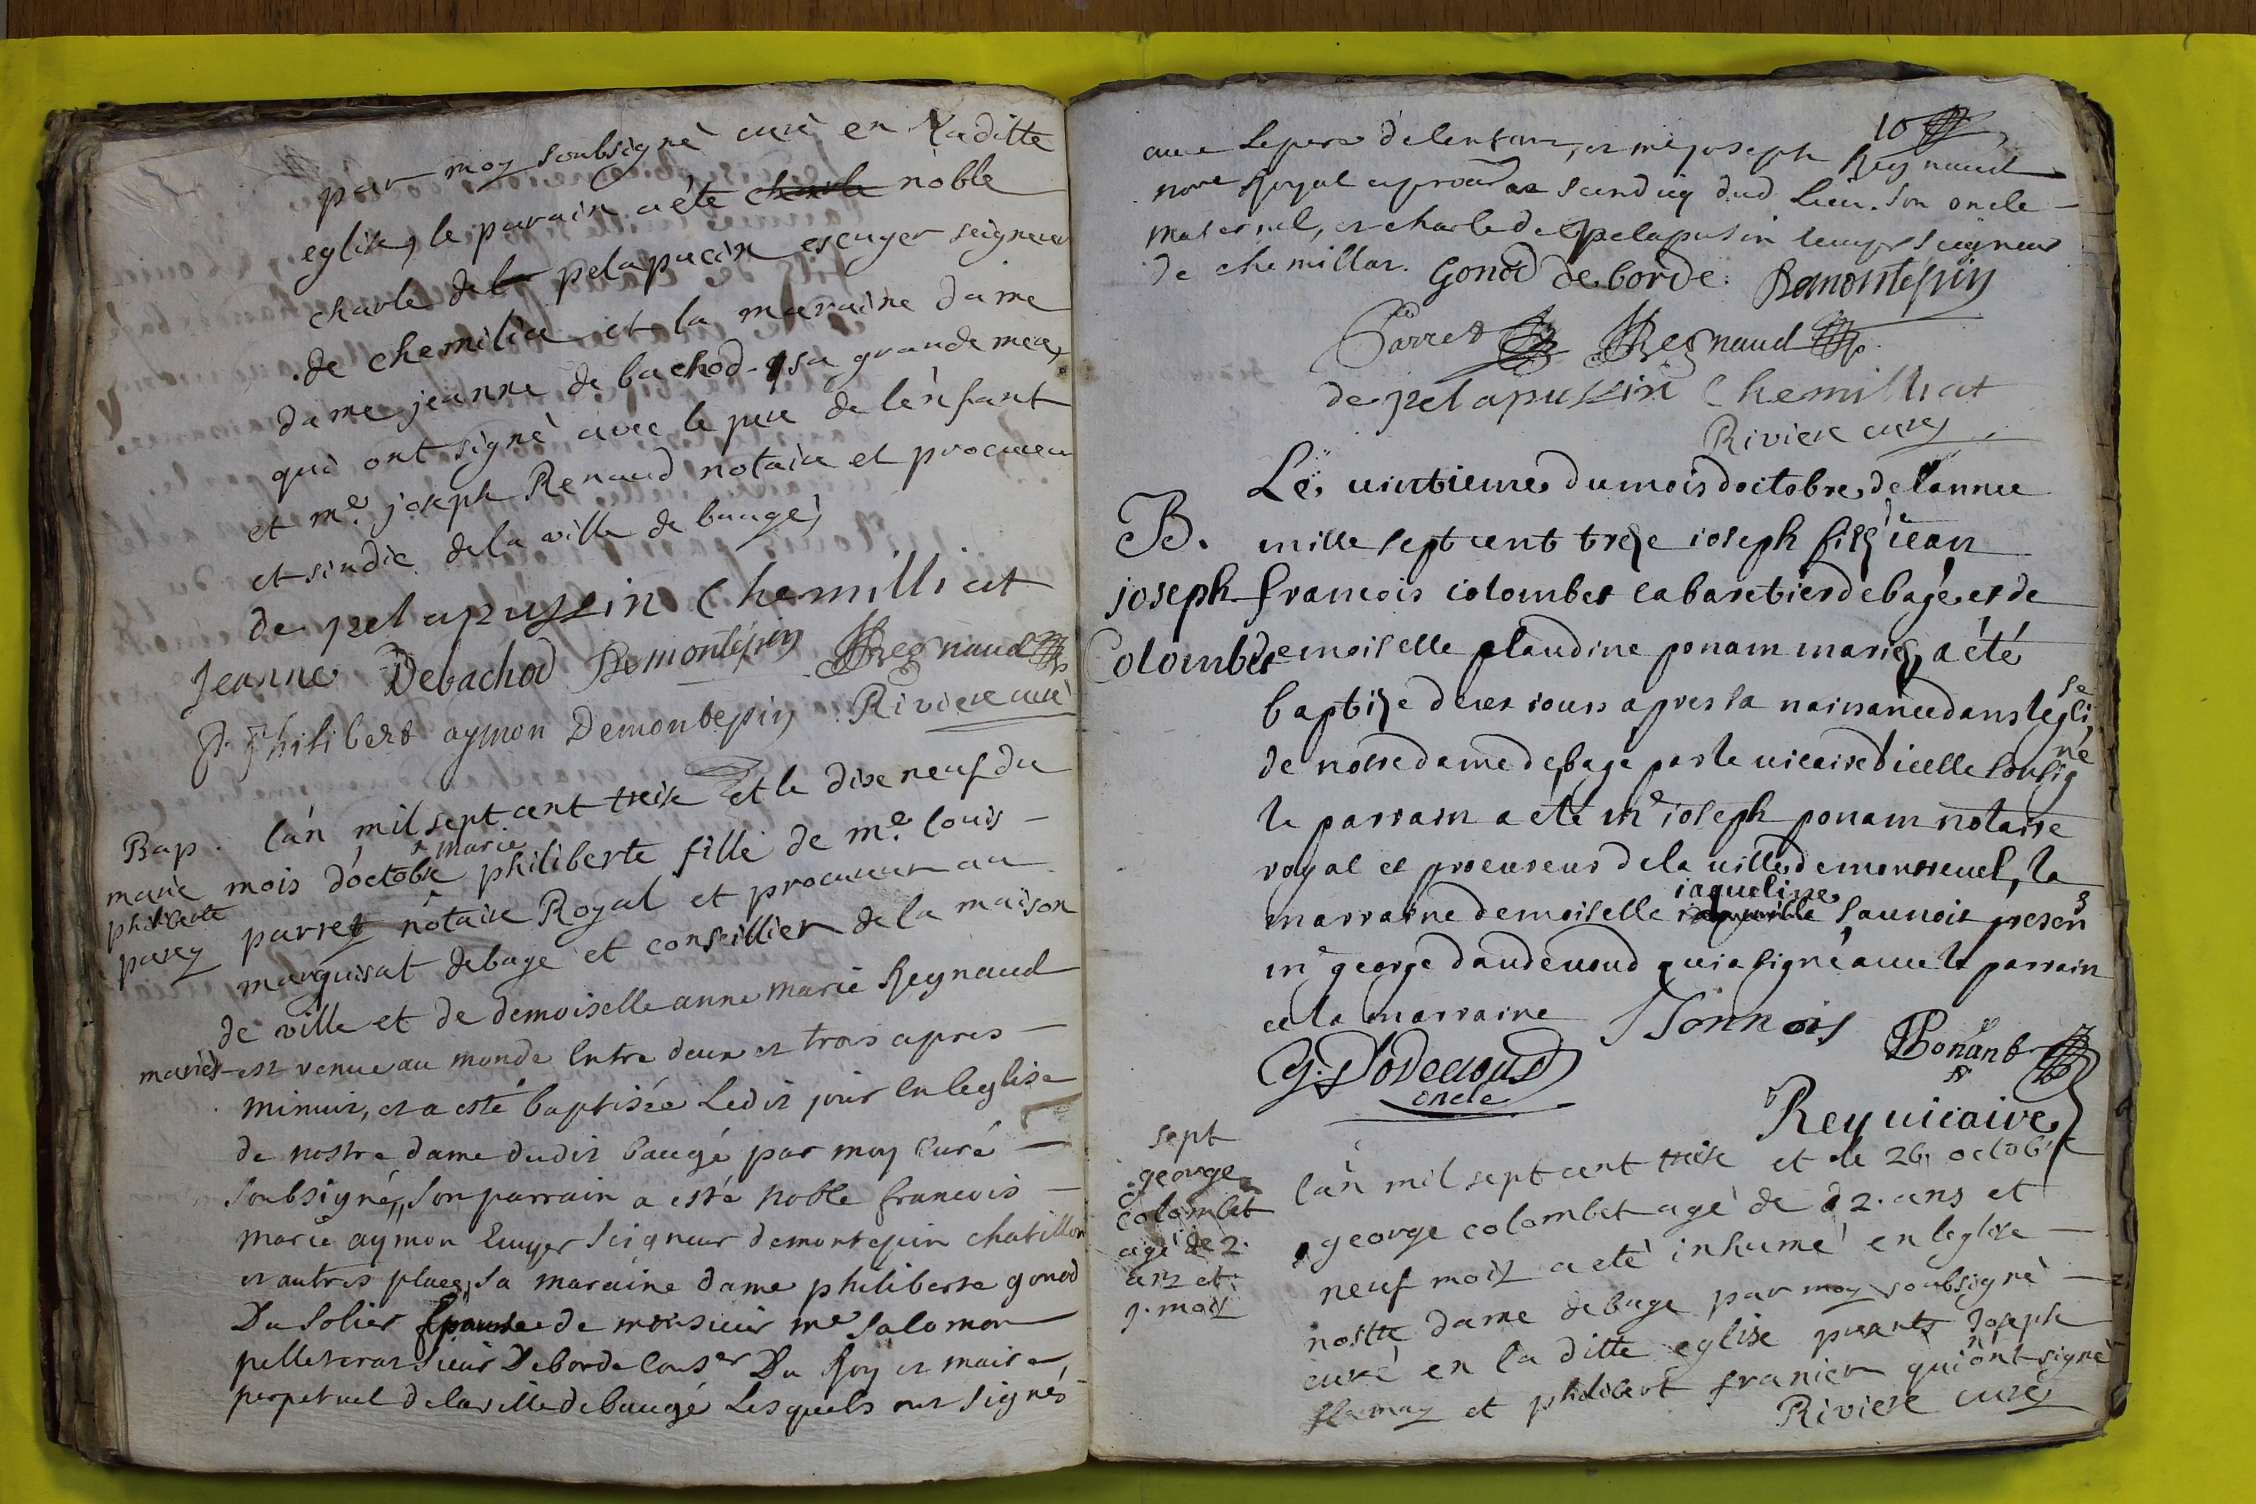 par moy soubsigné curé en laditte
eglise, le parain a éte charle noble
charle de la pelapucin escuyer seigneur
de chemilia et la maraine dame
dame jeanne de bachod sa grande mere,
qui ont signé avec le pere de lénfant
et me. joseph Renaud notaire et procureur
et sindic de la ville de baugé,
de pelapussin Chemilliat
Jeanne Debachod Demontépin JRegnaud
F. Philibert aymon Demontepin Riviere curé
Bap. lán mil sept cent treise et le dixe neuf du
marie mois dóctobre marie philiberte fille de me. louis
philiberte
parey parret nótaire Royal et procureur au
marquisat debagé et conseillier de la maison
de ville et de demoiselle anne marie Reynaud
mariés est venue au monde Entre deux et trois apres
minuit, et a esté baptisée Ledit jour En leglise
de nostre dame dudit baugé par moy Curé
soubsigné, Son parrain a esté Noble francois
marie aymon Ecuyer Seigneur demontepin chatillon
et autres places, Sa maraine dame philiberte gonod
Du Solier Epouse de monsieur me Salomon
pelleterat sieur Deborde Conser Du Roy et maire
perpetuel de la ville de baugé Lesquels ont signés
10
avec le pere de lenfant, et me joseph Reynaud
nore Royal et sindiq dud Lieu. Son oncle
maternel, et charle de pelapusin Ecuyer Seigneur
de chemillat. Gonod de borde. Demontepin
Parret JRegnaud
de pelapussin Chemilliat
Riviere curé
Le vintieme du mois doctobre de lannee
B. mille sept cent treze ioseph fils iean
joseph francois colombet cabaretier de bagé et de
Colombet demoiselle claudine ponam mariés, a été
baptize deux iours apres sa naissance dans légli
se
de notre dame de bage par le vicaire dicelle sousig
né
le parrain a été me ioseph ponam notaire
royal et procureur de la ville de montrevel, la
iaqueline
marraine demoiselle saunois présen
me george daudevoud qui a signé avec le parrain
et la marraine SSonnois
JPonant
G. Dodevoud
oncle
Rey vicaire
sept lán mil sept cent treise et le 26 octobre
george george colombet agé de 2. ans et
colombet neuf mois a eté inhumé en leglise
agé de 2. nostte dame de bage par moy soubsigné
ans et curé en la ditte eglise presents joseph
9. mois et philibert franier qui n'ont signé
Riviere curé